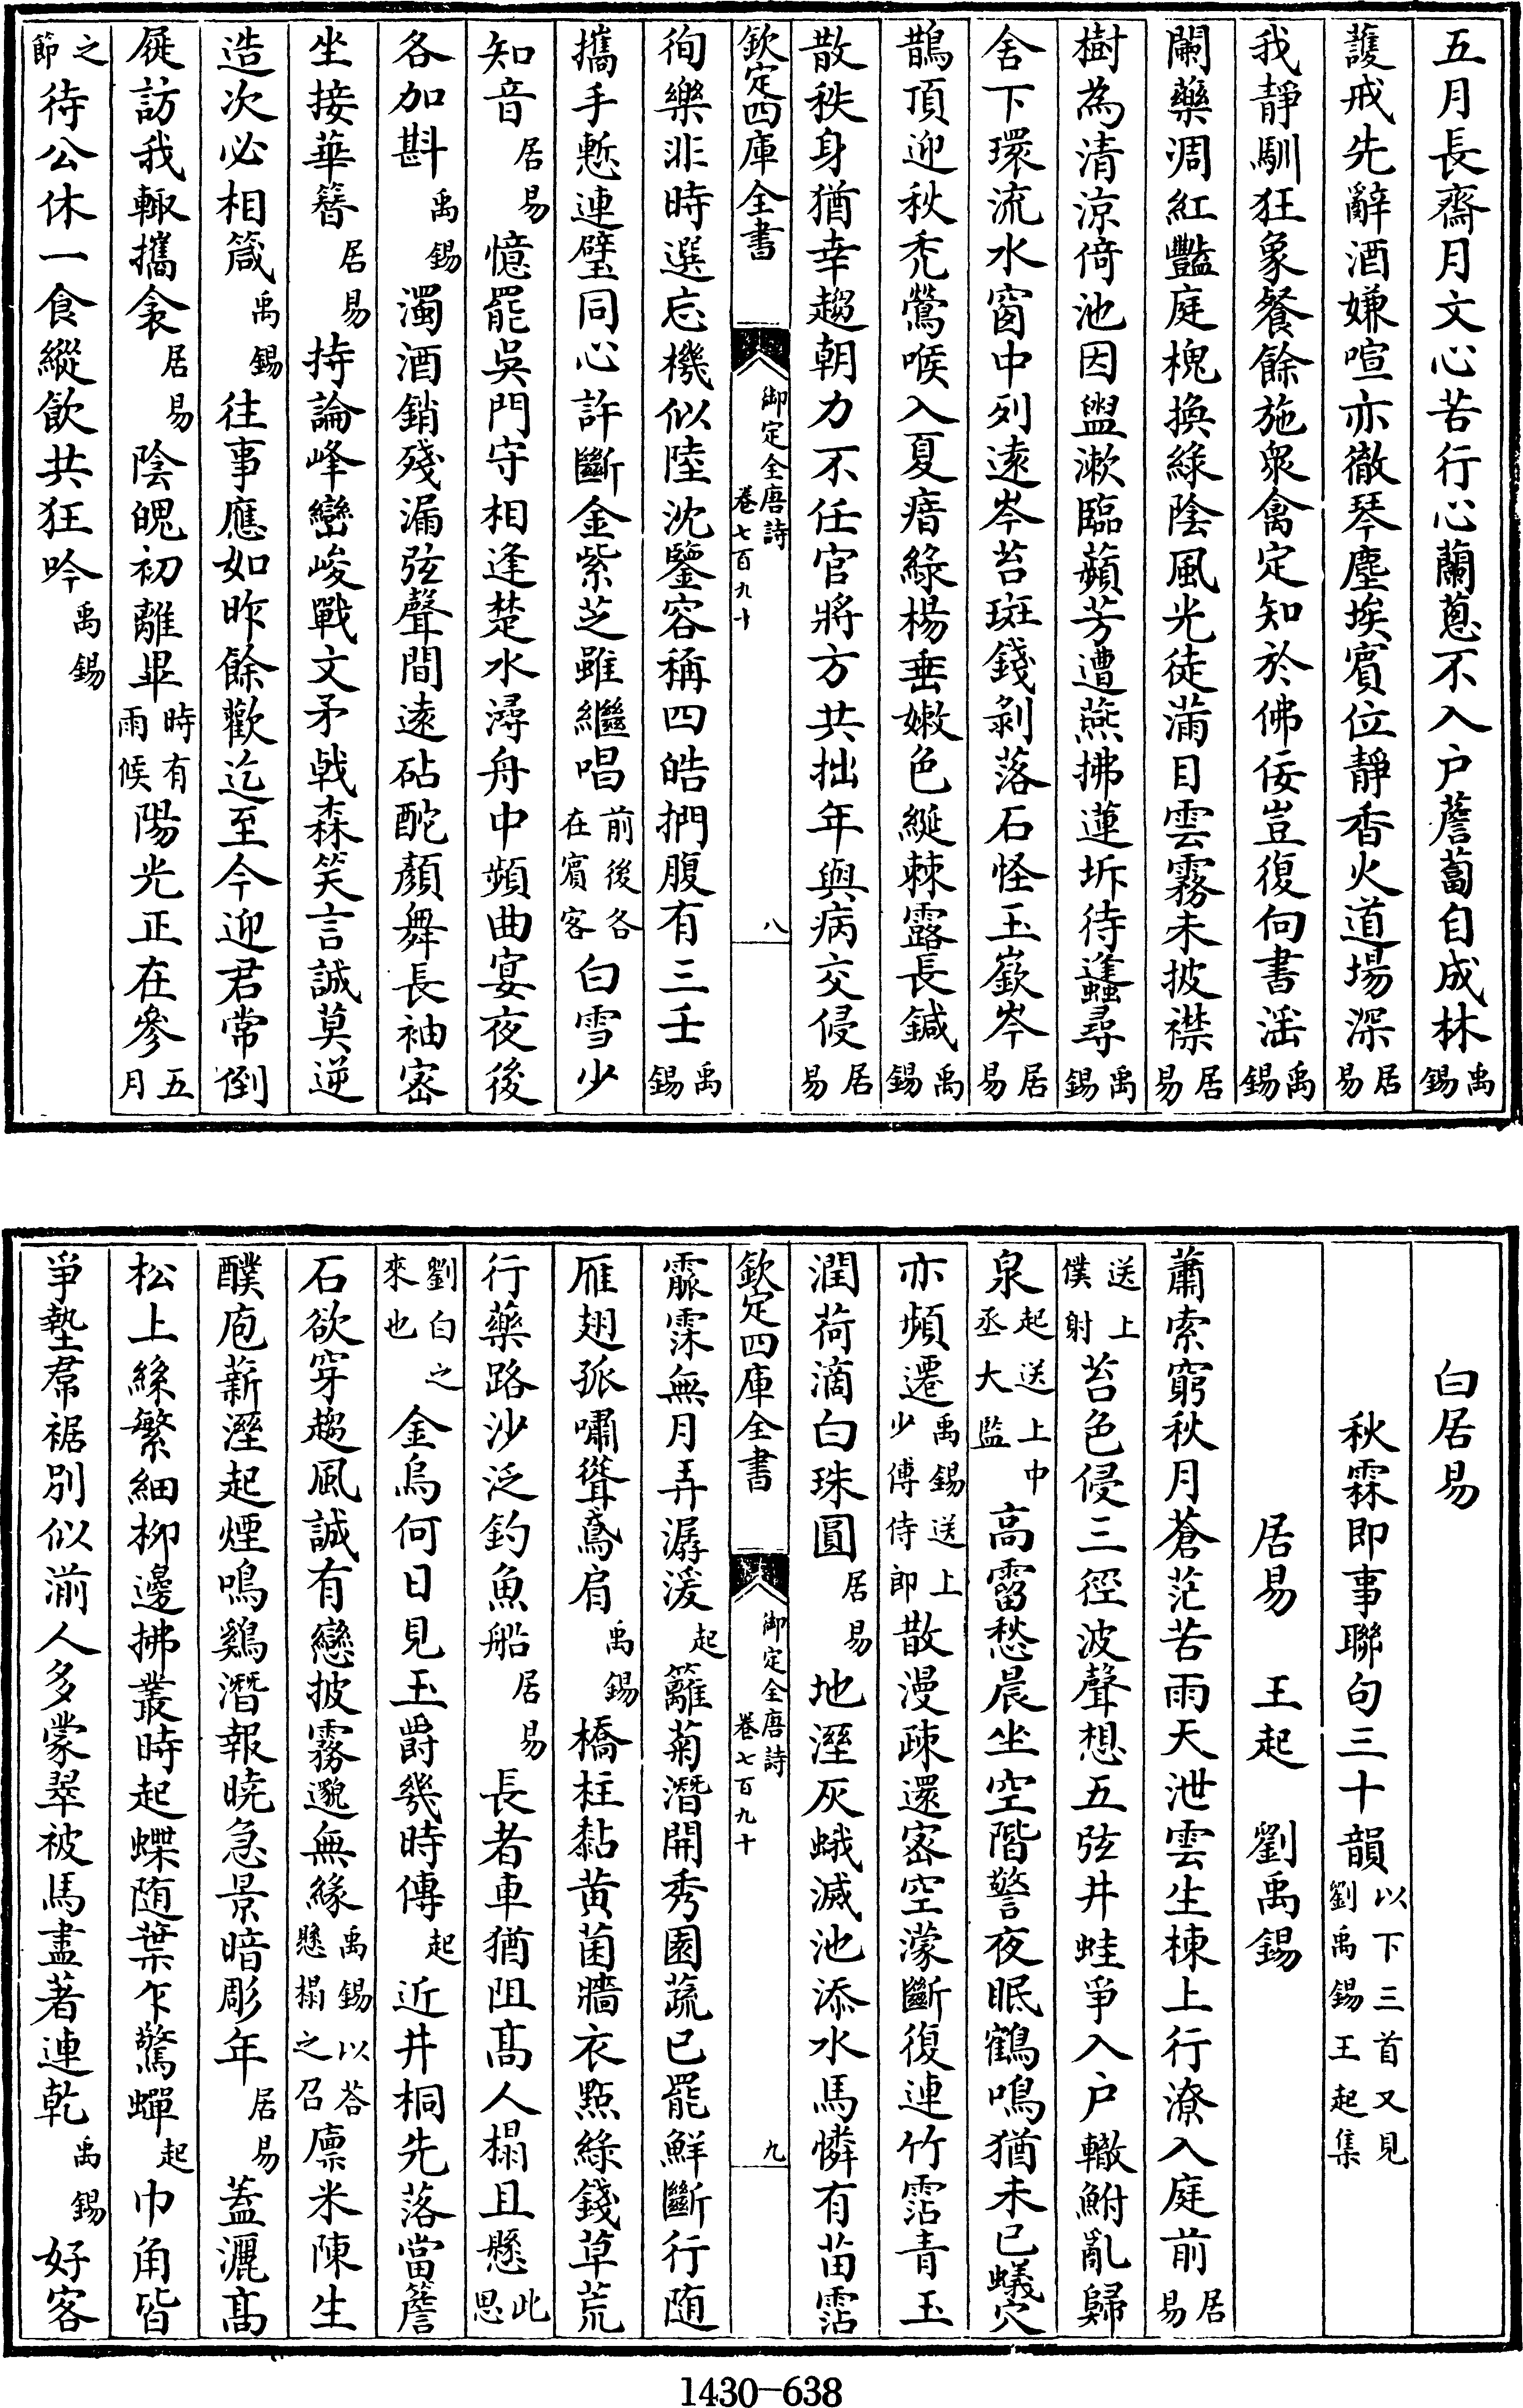 五月長齋月文心苦行心蘭蔥不入户薝蔔自成林禹錫
護戒先辭酒嫌喧亦徹琴塵埃賓位靜香火道場深居易
我靜馴狂象餐餘施衆禽定知於佛佞豈復向書淫禹錫
闌藥凋紅豔庭槐換綠陰風光徒滿目雲霧未披襟居易
樹為清涼倚池因盥漱臨蘋芳遭燕拂蓮坼待蠭尋禹錫
舍下環流水窗中列遠岑苔斑錢剝落石怪玉嶔岑居易
鵲頂迎秋秃鶯喉入夏瘖綠楊垂嫩色綖棘露長鍼禹錫
散秩身猶幸趨朝力不任官將方共拙年與病交侵居易
欽定四庫全書 御定全唐詩 卷七百九十 八
徇樂非時選忘機似陸沈鑒容稱四皓捫腹有三壬禹錫
攜手慙連璧同心許斷金紫芝雖繼唱前後各在賓客白雪少
知音居易憶罷吳門守相逢楚水潯舟中頻曲宴夜後
各加斟禹錫濁酒銷殘漏弦聲間遠砧酡顏舞長袖密
坐接華簪居易持論峰巒峻戰文矛戟森笑言誠莫逆
造次必相箴禹錫往事應如昨餘歡迄至今迎君常倒
屣訪我輙攜衾居易陰魄初離畢時有雨候陽光正在參五月
之節待公休一食縱飲共狂吟禹錫
白居易
秋霖即事聯句三十韻以下三首又見劉禹錫王起集
居易 王起 劉禹錫
蕭索窮秋月蒼茫苦雨天泄雲生棟上行潦入庭前居易
送上僕射苔色侵三徑波聲想五弦井蛙爭入户轍鮒亂歸
泉起送上中丞大監高霤愁晨坐空階警夜眠鶴鳴猶未已蟻穴
亦頻遷禹錫送上少傅侍郎散漫疎還密空濛斷復連竹霑青玉
潤荷滴白珠圓居易地溼灰蛾滅池添水馬憐有苗霑
欽定四庫全書 御定全唐詩 卷七百九十 九
霢霂無月弄潺湲起籬菊潛開秀園蔬已罷鮮斷行随
雁翅孤嘯聳鳶肩禹錫橋柱黏黄菌牆衣點綠錢草荒
行藥路沙泛釣魚船居易長者車猶阻髙人榻且懸此思
劉白之來也金烏何日見玉爵幾時傳起近井桐先落當簷
石欲穿趨風誠有戀披霧邈無緣禹錫以荅懸榻之召廪米陳生
醭庖薪溼起煙鳴鷄潛報曉急景暗彫年居易葢灑髙
松上絲繁細柳邊拂叢時起蝶随葉乍驚蟬起巾角皆
爭墊裙裾別似湔人多蒙翠被馬盡著連乾禹錫好客
1430-638